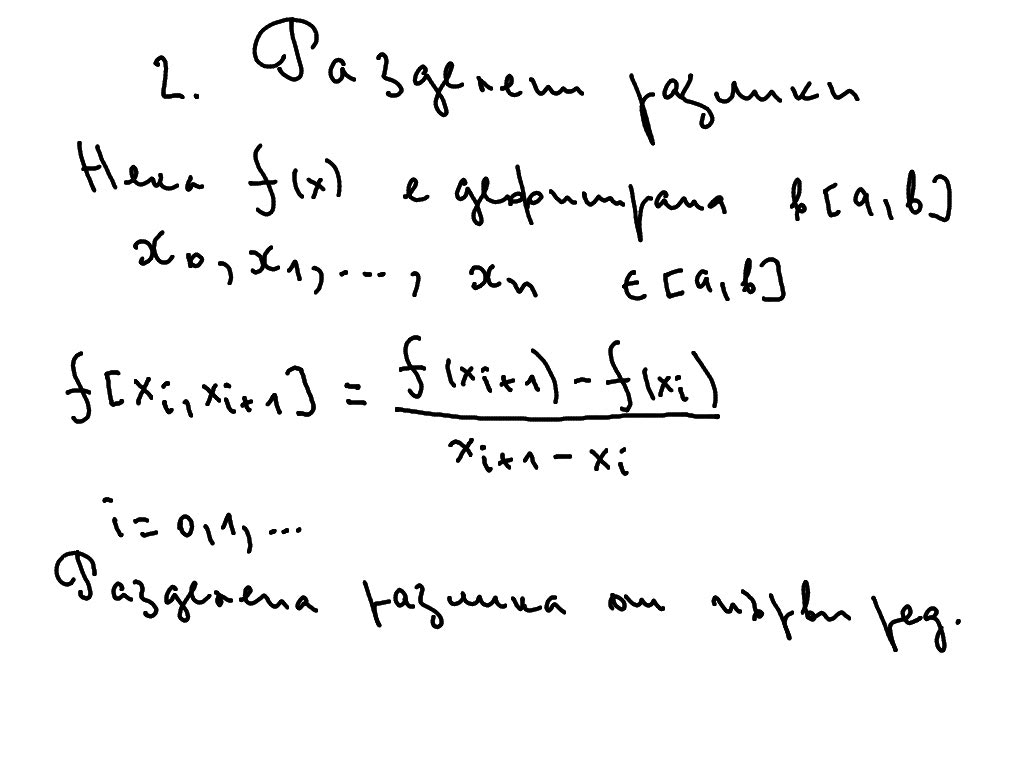 2. Разделени разлики
Нека f(x) е дефинирана в [a,b]
x₀, x₁, ..., xₙ ∈ [a,b]
f[xᵢ, xᵢ₊₁] = (f(xᵢ₊₁) - f(xᵢ)) / (xᵢ₊₁ - xᵢ)
i = 0, 1, ...
Разделена разлика от първи ред.